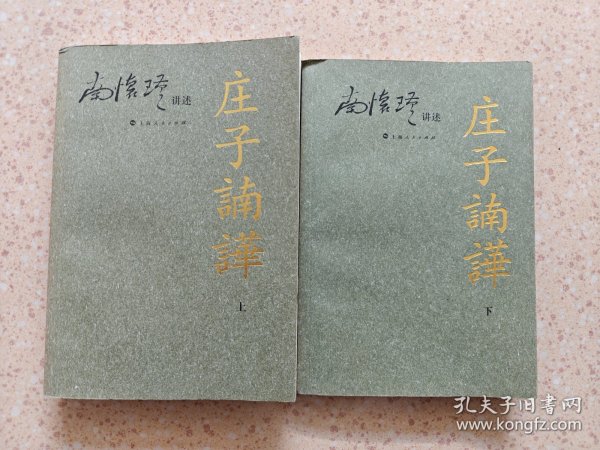 南怀瑾 讲述
上海人民出版社
庄子諵譁
上
南怀瑾 讲述
上海人民出版社
庄子諵譁
下
孔夫子旧书网